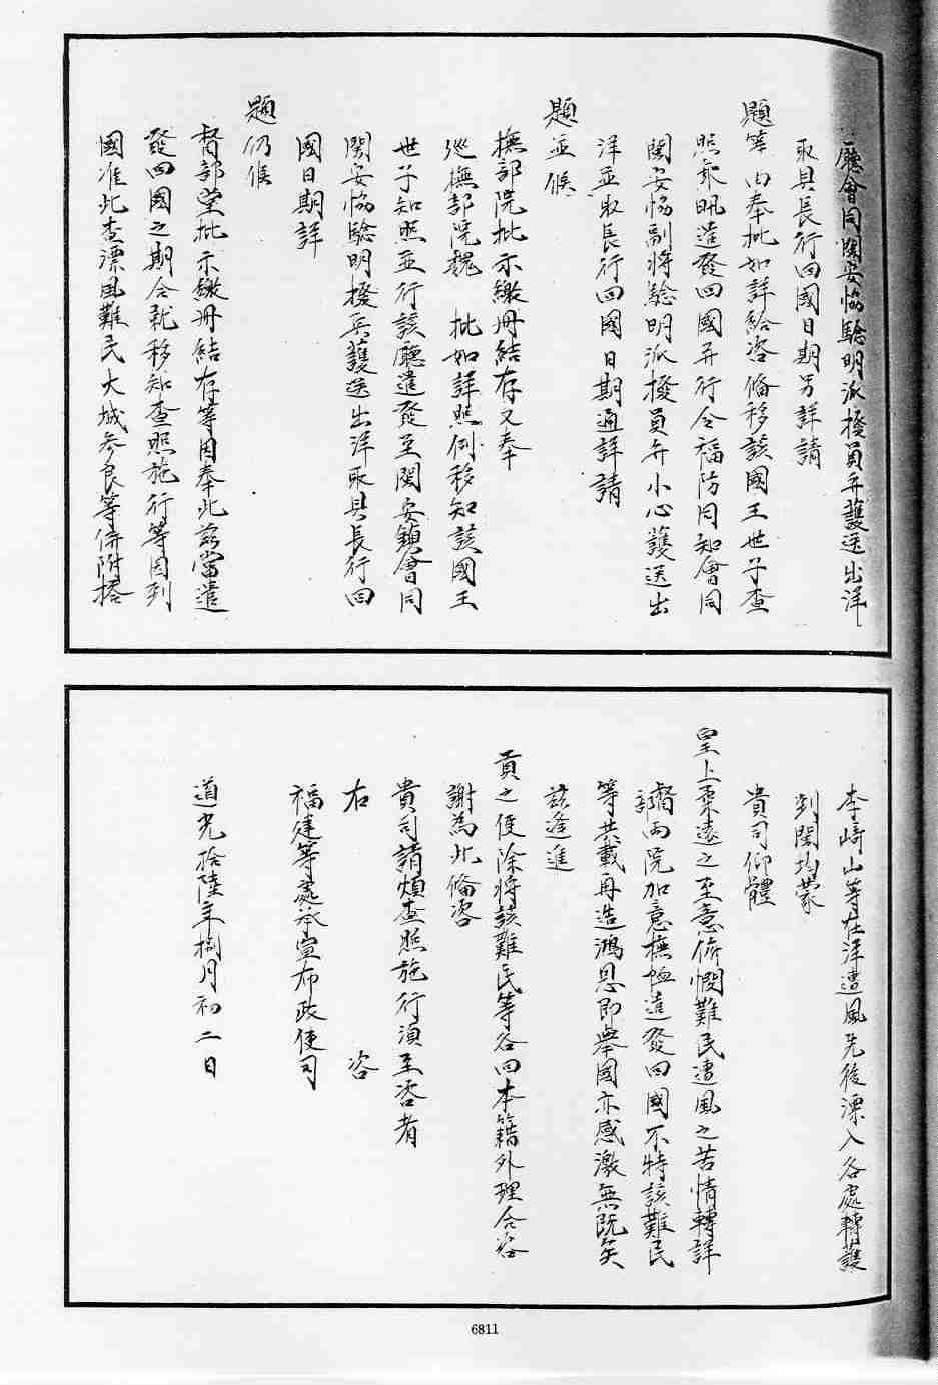 廳會同閩安協驗明派撥員弁護送出洋
取具長行回國日期另詳請
題等由奉批如詳給咨備移該國王世子查
照乘汛遣發回國并行令福防同知會同
閩安協副將驗明派撥員弁小心護送出
洋並取長行回國日期通詳請
題並候
撫部院批示繳冊結存又奉
巡撫部院魏 批如詳照例移知該國王
世子知照並行該廳遣發至閩安鎮會同
閩安協驗明撥兵護送出洋取具長行回
國日期詳
題仍候
督部堂批示繳冊結存等因奉此茲當遣
發回國之期合就移知查照施行等因到
國准此查漂風難民大城參良等併附搭
李崎山等在洋遭風先後漂入各處轉護
到閩均蒙
貴司仰體
皇上柔遠之至意俯憫難民遭風之苦情轉詳
督兩院加意撫恤遣發回國不特該難民
等共載再造鴻恩即舉國亦感激無既矣
茲逢進
貢之便除將該難民等各回本籍外理合咨
謝為此備咨
貴司請煩查照施行須至咨者
右 咨
福建等處承宣布政使司
道光拾陸年捌月初二日
6811